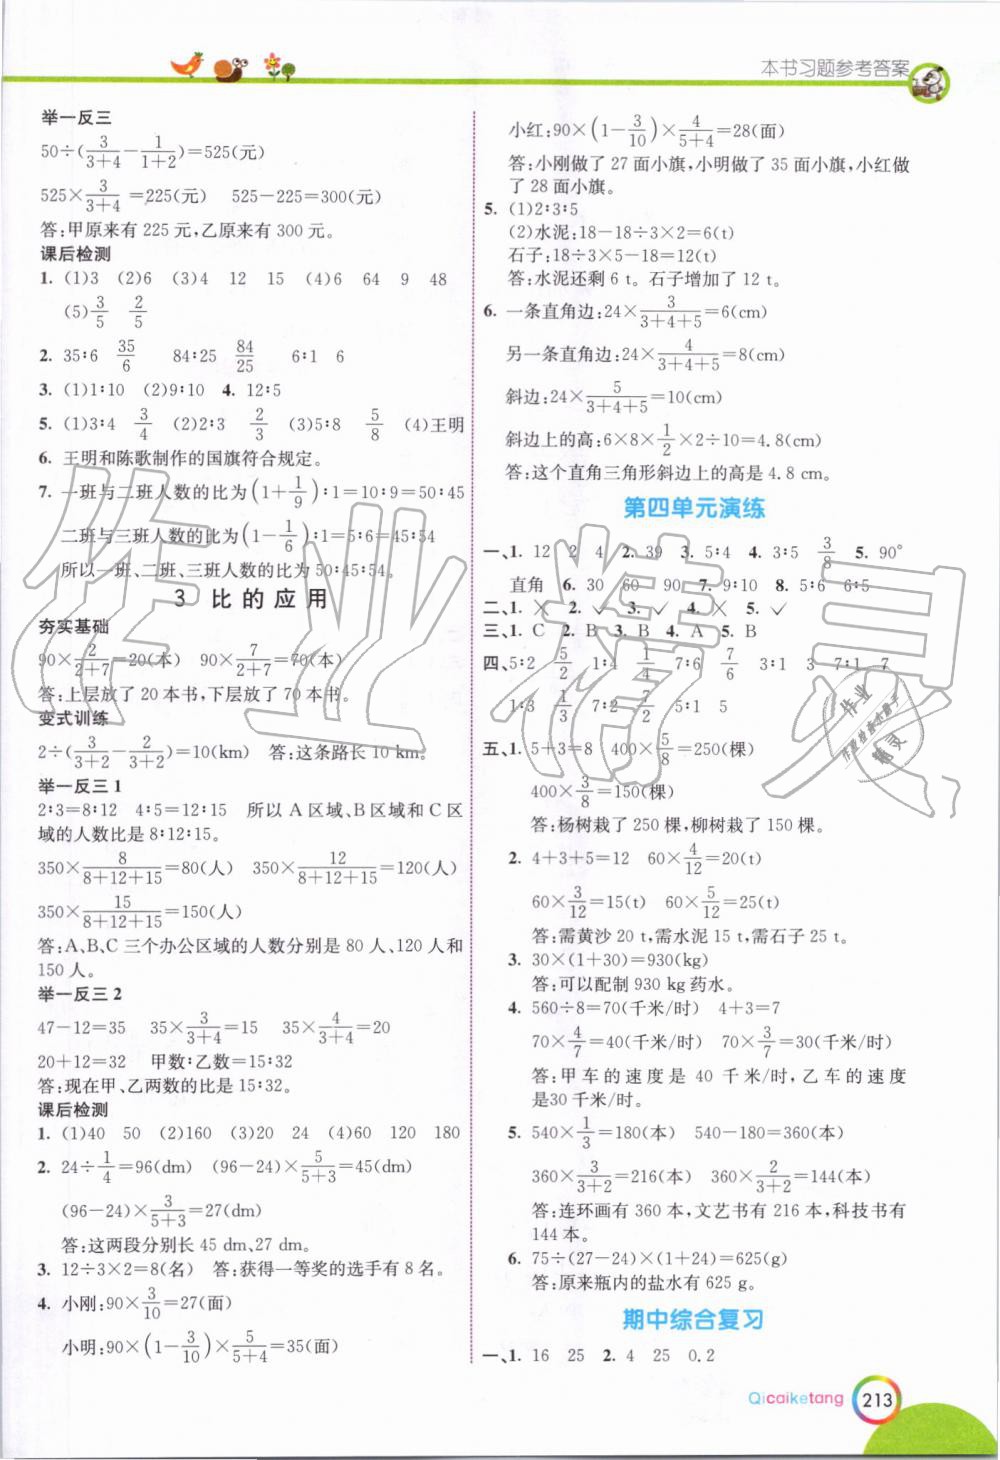 本书习题参考答案
举一反三
50÷(3/(3+4)−1/(1+2))=525(元)
525×3/(3+4)=225(元) 525−225=300(元)
答:甲原来有 225 元,乙原来有 300 元。
课后检测
1. (1)3 (2)6 (3)4 12 15 (4)6 64 9 48
(5)3/5 2/5
2. 35∶6 35/6 84∶25 84/25 6∶1 6
3. (1)1∶10 (2)9∶10 4. 12∶5
5. (1)3∶4 3/4 (2)2∶3 2/3 (3)5∶8 5/8 (4)王明
6. 王明和陈歌制作的国旗符合规定。
7. 一班与二班人数的比为(1+1/9)∶1=10∶9=50∶45
二班与三班人数的比为(1−1/6)∶1=5∶6=45∶54
所以一班、二班、三班人数的比为 50∶45∶54。
3 比的应用
夯实基础
90×2/(2+7)=20(本) 90×7/(2+7)=70(本)
答:上层放了 20 本书,下层放了 70 本书。
变式训练
2÷(3/(3+2)−2/(3+2))=10(km) 答:这条路长 10 km。
举一反三 1
2∶3=8∶12 4∶5=12∶15 所以 A 区域、B 区域和 C 区
域的人数比是 8∶12∶15。
350×8/(8+12+15)=80(人) 350×12/(8+12+15)=120(人)
350×15/(8+12+15)=150(人)
答:A、B、C 三个办公区域的人数分别是 80 人、120 人和
150 人。
举一反三 2
47−12=35 35×3/(3+4)=15 35×4/(3+4)=20
20+12=32 甲数∶乙数=15∶32
答:现在甲、乙两数的比是 15∶32。
课后检测
1. (1)40 50 (2)160 (3)20 24 (4)60 120 180
2. 24÷1/4=96(dm) (96−24)×5/(5+3)=45(dm)
(96−24)×3/(5+3)=27(dm)
答:这两段分别长 45 dm、27 dm。
3. 12÷3×2=8(名) 答:获得一等奖的选手有 8 名。
4. 小刚:90×3/10=27(面)
小明:90×(1−3/10)×5/(5+4)=35(面)
小红:90×(1−3/10)×4/(5+4)=28(面)
答:小刚做了 27 面小旗,小明做了 35 面小旗,小红做
了 28 面小旗。
5. (1)2∶3∶5
(2)水泥:18−18÷3×2=6(t)
石子:18÷3×5−18=12(t)
答:水泥还剩 6 t。石子增加了 12 t。
6. 一条直角边:24×3/(3+4+5)=6(cm)
另一条直角边:24×4/(3+4+5)=8(cm)
斜边:24×5/(3+4+5)=10(cm)
斜边上的高:6×8×1/2×2÷10=4.8(cm)
答:这个直角三角形斜边上的高是 4.8 cm。
第四单元演练
一、1. 12 2 4 2. 39 3. 5∶4 4. 3∶5 3/8 5. 90°
直角 6. 30 60 90 7. 9∶10 8. 5∶6 6∶5
二、1. × 2. ✓ 3. ✓ 4. × 5. ✓
三、1. C 2. B 3. B 4. A 5. B
四、5∶2 5/2 1∶4 1/4 7∶6 7/6 3∶1 3 7∶1 7
1∶3 1/3 7∶2 7/2 5∶1 5
五、1. 5+3=8 400×5/8=250(棵)
400×3/8=150(棵)
答:杨树栽了 250 棵,柳树栽了 150 棵。
2. 4+3+5=12 60×4/12=20(t)
60×3/12=15(t) 60×5/12=25(t)
答:需黄沙 20 t,需水泥 15 t,需石子 25 t。
3. 30×(1+30)=930(kg)
答:可以配制 930 kg 药水。
4. 560÷8=70(千米/时) 4+3=7
70×4/7=40(千米/时) 70×3/7=30(千米/时)
答:甲车的速度是 40 千米/时,乙车的速度
是30 千米/时。
5. 540×1/3=180(本) 540−180=360(本)
360×3/(3+2)=216(本) 360×2/(3+2)=144(本)
答:连环画有 360 本,文艺书有 216 本,科技书有
144 本。
6. 75÷(27−24)×(1+24)=625(g)
答:原来瓶内的盐水有 625 g。
期中综合复习
一、1. 16 25 2. 4 25 0.2
Qicaiketang 213
作业精灵